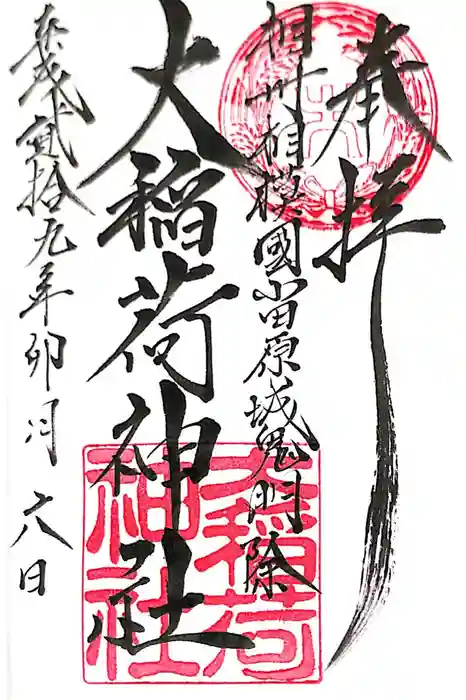 奉拝
相州相模國小田原城鬼門除
大稲荷神社
大稲荷
神社
平成貳拾九年卯月六日